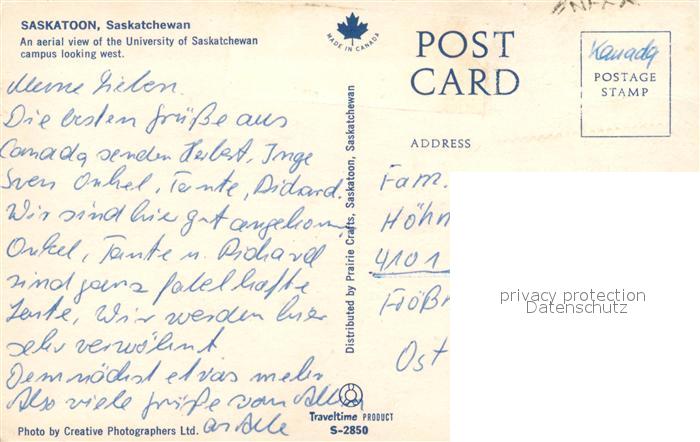 SASKATOON, Saskatchewan
An aerial view of the University of Saskatchewan
campus looking west.
MADE IN CANADA
POST
CARD
Kanada
POSTAGE
STAMP
ADDRESS
Meine Lieben.
Die besten Grüße aus
Canada senden Herbert, Inge
Sven Onkel, Tante, Richard.
Wir sind hier gut angekomm
Onkel, Tante u. Richard
sind ganz fabelhafte
Leute, Wir werden hier
sehr verwöhnt
Demnächst etwas mehr
Also viele Grüße von Allen
an Alle
Distributed by Prairie Crafts, Saskatoon, Saskatchewan
Fam.
Höhn
4101
Flößr
Ost
privacy protection
Datenschutz
Traveltime PRODUCT
S-2850
Photo by Creative Photographers Ltd.